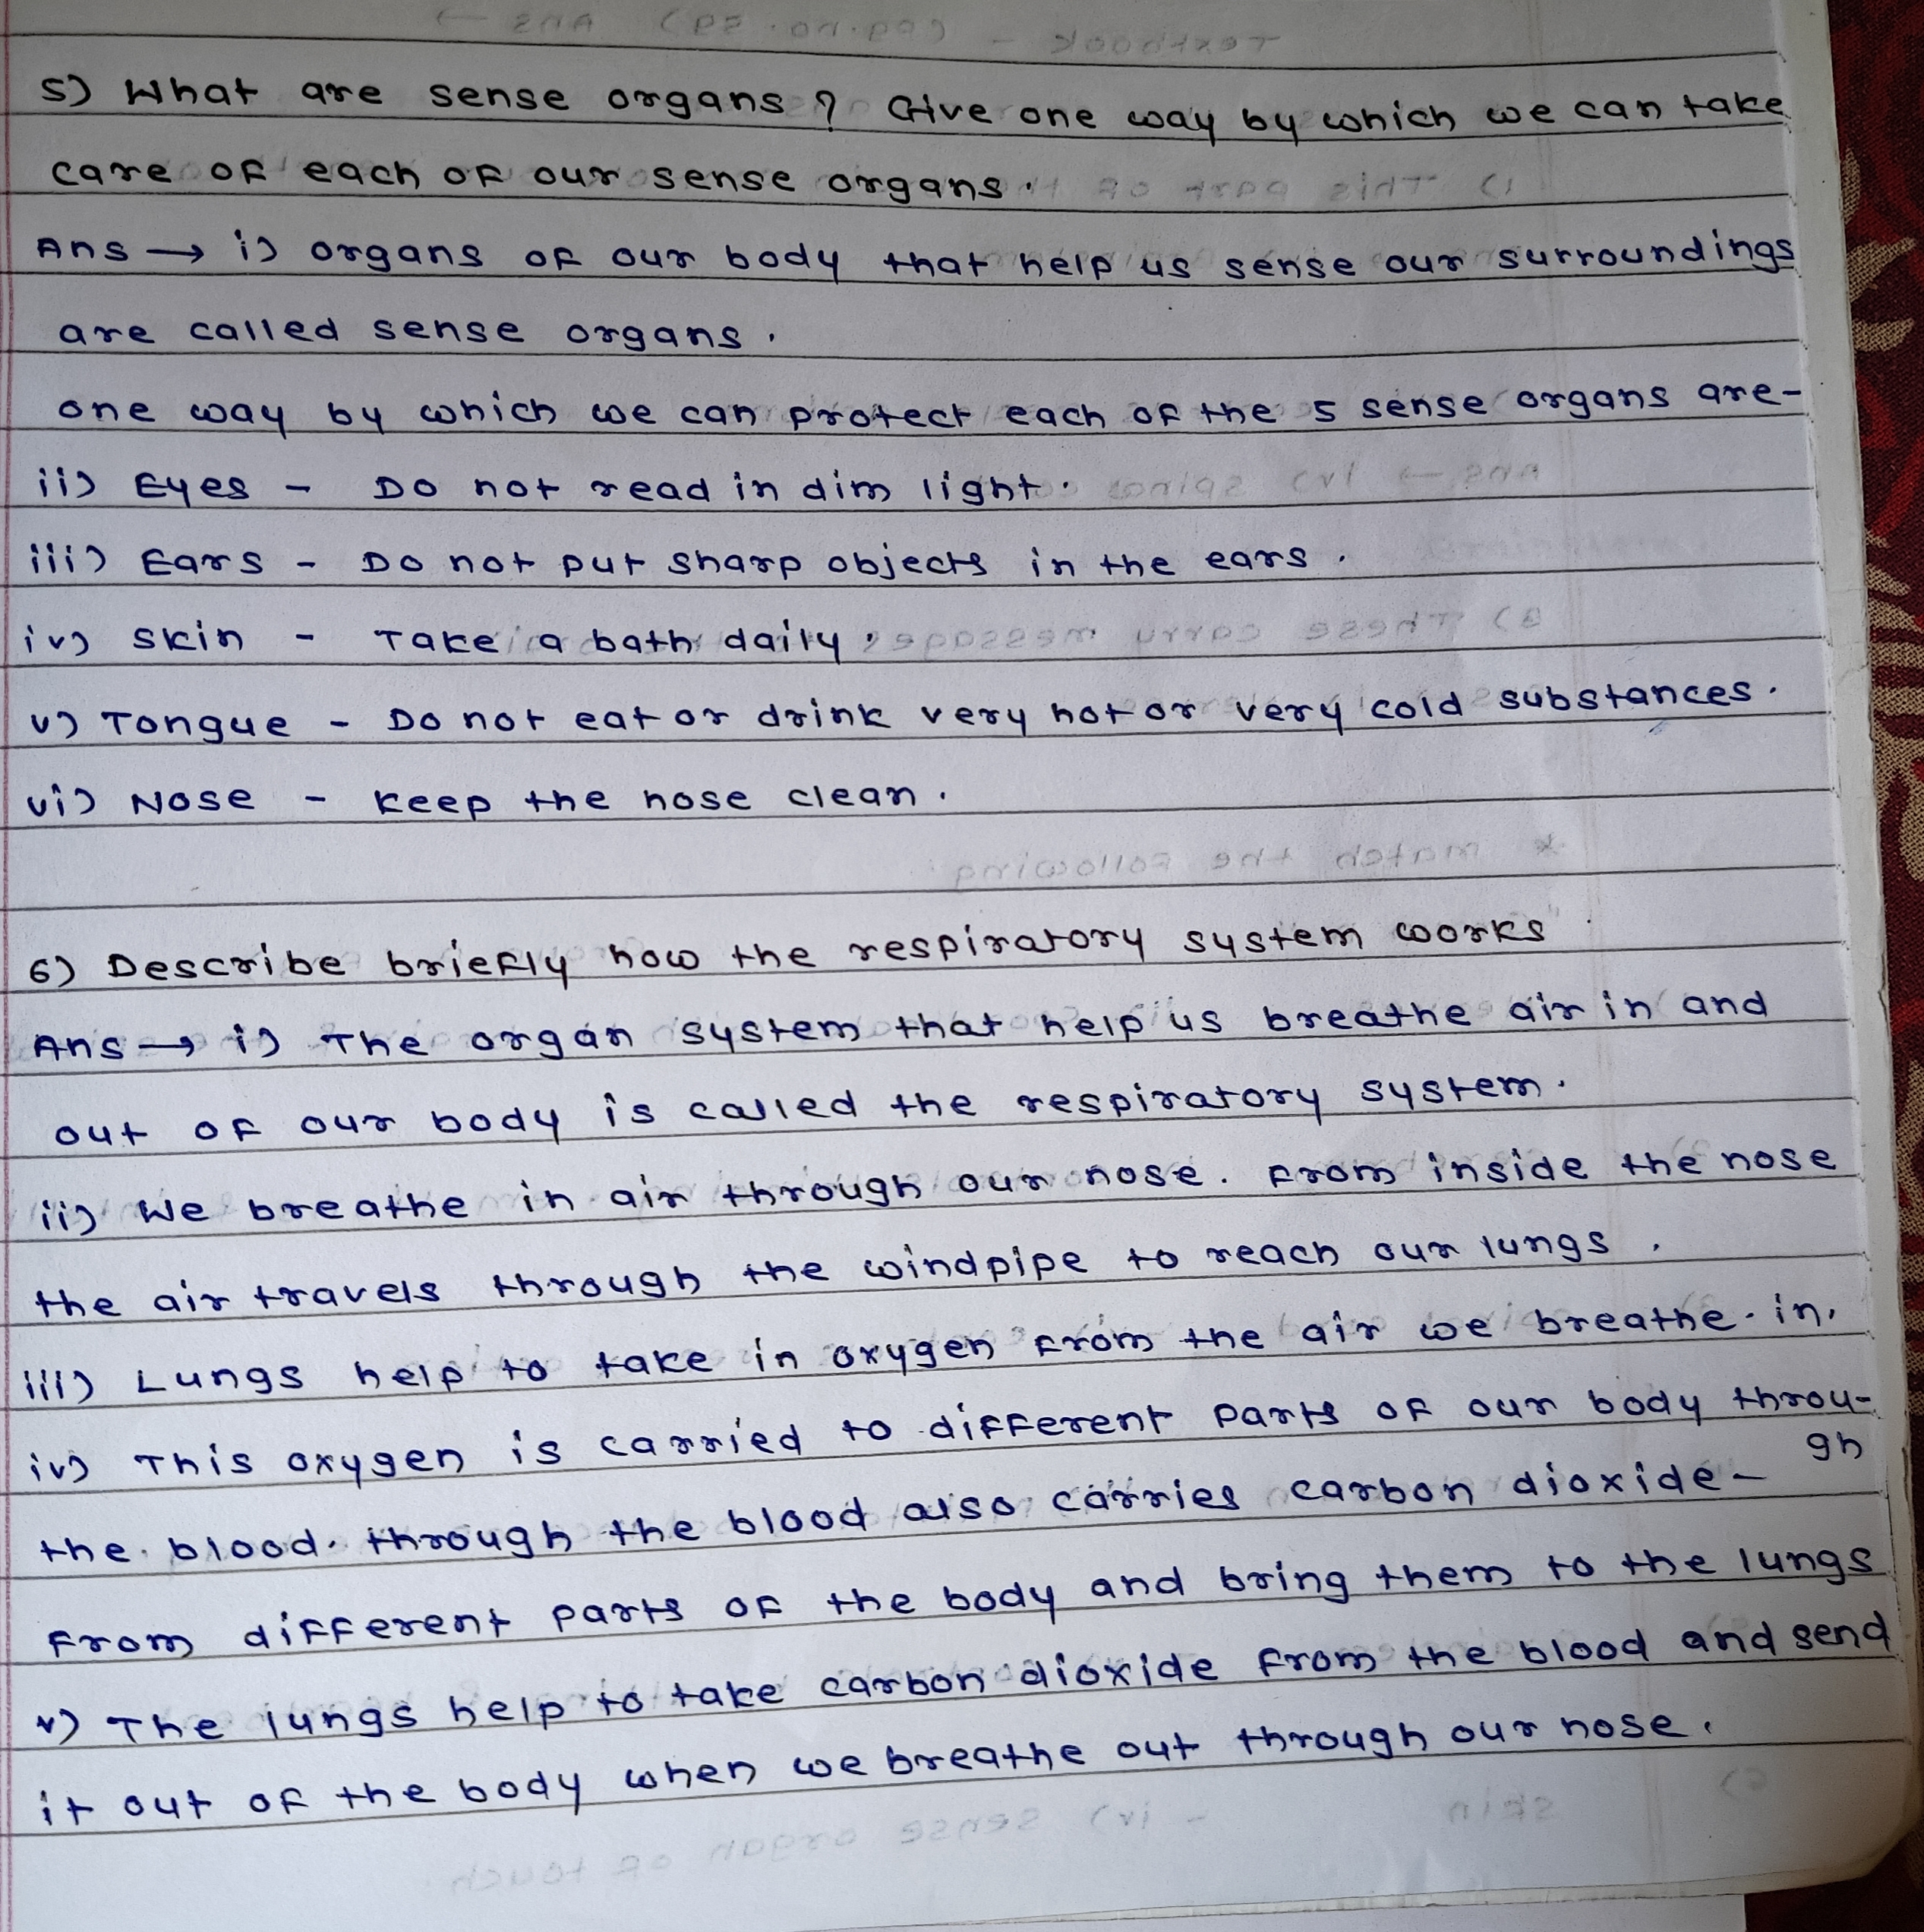 5) What are sense organs? Give one way by which we can take
care of each of our sense organs.
Ans → i) organs of our body that help us sense our surroundings
are called sense organs.
one way by which we can protect each of the 5 sense organs are-
ii) Eyes - Do not read in dim light.
iii) Ears - Do not put sharp objects in the ears.
iv) Skin - Take a bath daily.
v) Tongue - Do not eat or drink very hot or very cold substances.
vi) Nose - Keep the nose clean.
6) Describe briefly how the respiratory system works
Ans → i) The organ system that help us breathe air in and
out of our body is called the respiratory system.
ii) We breathe in air through our nose. From inside the nose
the air travels through the windpipe to reach our lungs.
iii) Lungs help to take in oxygen from the air we breathe. in.
iv) This oxygen is carried to different parts of our body throu-
gh
the. blood. through the blood also carries carbon dioxide-
from different parts of the body and bring them to the lungs
v) The lungs help to take carbon dioxide from the blood and send
it out of the body when we breathe out through our nose.